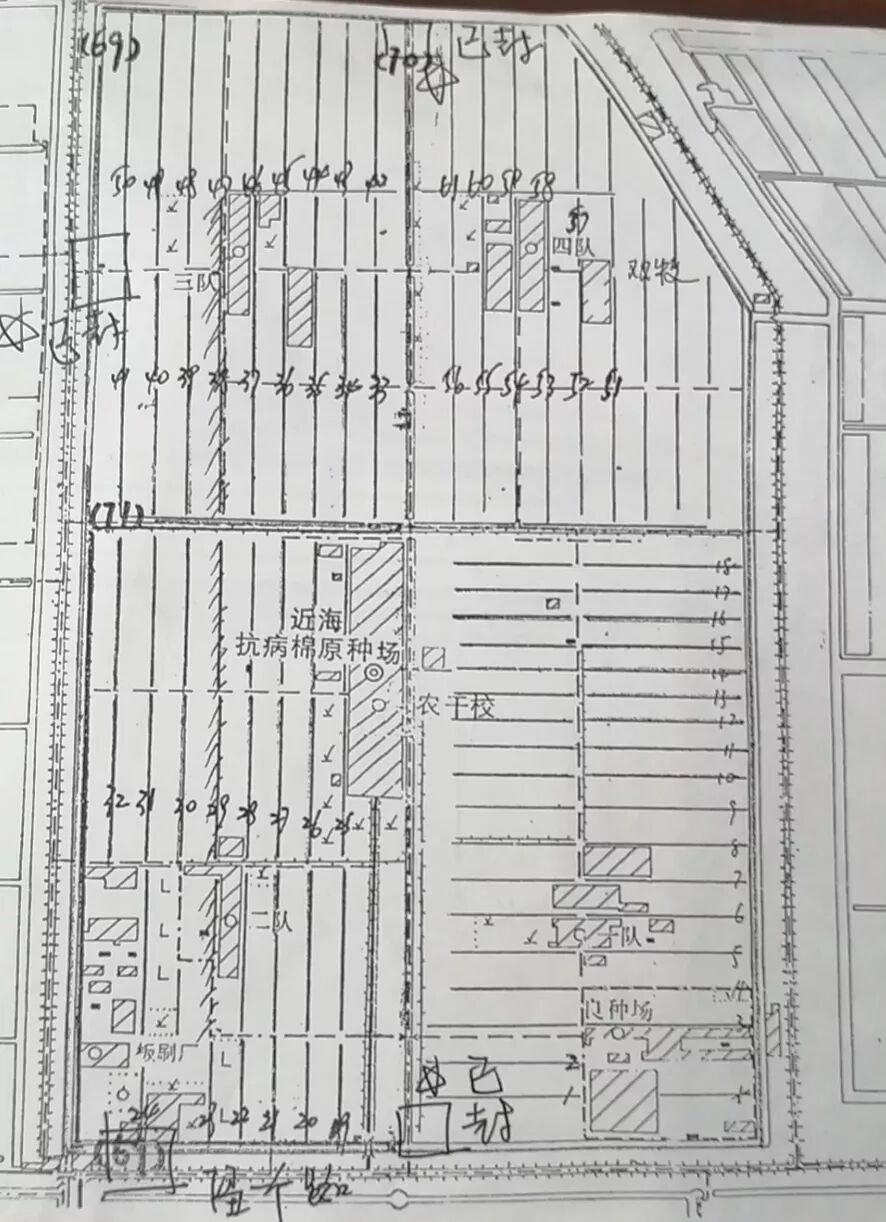 (69)
(70) 已封
50 49 48 47 46 45 44 43 42
61 60 59 58
57
四队
三队
已封
41 40 39 38 37 36 35 34 33
56 55 54 53 52 51
(71)
18
17
近海
16
抗病棉原种场
15
14
农干校
13
12
11
10
32 31 30 29 28 27 26 25
9
8
7
6
二队
队
5
4
良种场
3
纸刷厂
2
已
1
封
24 23 22 21 20 19
四个路口